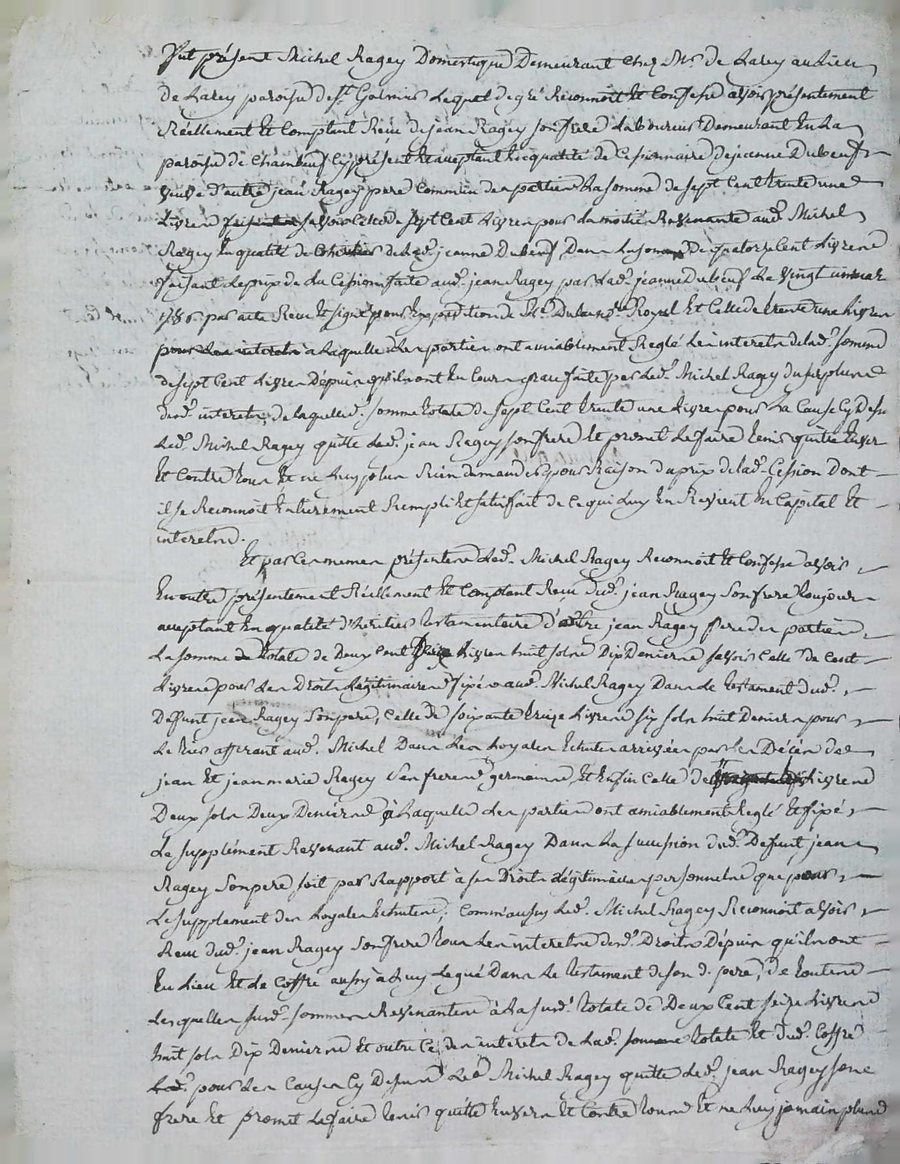 Fut présent Michel Ragey Domestique Demeurant chez Mr. de Larey au Lieu
de Larey paroisse de St. Galmier Lequel de gré Reconnoit et Confesse avoir présentement
Réellement Et Comptant Reçu de jean Ragey son frere Laboureur Demeurant En La
paroisse de Chambeuf Cy présent et acceptant En qualité de Cessionnaire de jeanne Dubeuf
veuve d'autre jean Ragey pere Commun des parties La somme de sept Cent trente une
Livres savoir Celle de sept Cent Livres pour La moitié Revenante aud. Michel
Ragey En qualité de de Lad. jeanne Dubeuf, Dans La somme De quatorze Cent Livres
faisant Le prix de La Cession faite aud. jean Ragey par Lad. jeanne Dubeuf Le vingt un mars
par acte Reçu Et signé pour Expedition de Me. Royal Et Celle de trente une Livres
pour Les interets à Laquelle Les parties ont amiablement Reglé Les interets de Lad. somme
de sept Cent Livres Depuis qu'ils ont Eu Cours grace faite par Led. Michel Ragey du surplus
desd. interets, de Laquelle somme totale de sept Cent trente une Livres pour La Cause Cy Dessus
Led. Michel Ragey quitte Led. jean Ragey son frere Et promet Le faire tenir quitte Envers
Et Contre tous Et ne Luy plus Rien demander pour Raison du prix de Lad. Cession Dont
il se Reconnoit Entierement Rempli Et satisfait de Ce qui Luy En Revient En Capital Et
interets.
Et par Ces memes présentes Led. Michel Ragey Reconnoit Et Confesse avoir
En outre présentement Réellement Et Comptant Reçu dud. jean Ragey son frere toujours
acceptant En qualité d'heritier testamentaire d'autre jean Ragey Pere des parties
La somme totale de Deux Cent seize Livres huit sols Dix Deniers savoir Celle de Cent
Livres pour Les Droits Légitimaires fixés aud. Michel Ragey Dans Le testament dud.
Defunt jean Ragey son pere, Celle de soixante treize Livres six sols huit Deniers pour
Le tiers afferant aud. Michel Dans Les Loyales Echutes arrivées par Les Décès de
jean Et jean marie Ragey ses freres germains, Et Enfin Celle de Livres
Deux sols Deux Deniers à Laquelle Les parties ont amiablement Reglé Et fixé
Le supplément Revenant aud. Michel Ragey Dans La succession dud. Defunt jean
Ragey son pere soit par Rapport à ses Droits légitimaires personnels que pour
Le supplement des Loyales Echutes; Comm'aussy Led. Michel Ragey Reconnoit avoir
Reçu dud. jean Ragey son frere tous Les interets desd. Droits Depuis qu'ils ont
Eu Lieu Et Le Coffre aussy à Luy Legué Dans Le testament de son d. pere, de toutes
Lesquelles susd. sommes Revenantes à La susd. totale de Deux Cent seize Livres
huit sols Dix Deniers Et outre Ce des interets de Lad. somme totale Et dud. Coffre
pour Les Causes Cy Dessus Led. Michel Ragey quitte Led. jean Ragey son
frere Et promet Le faire tenir quitte Envers Et Contre tous Et ne Luy jamais plus